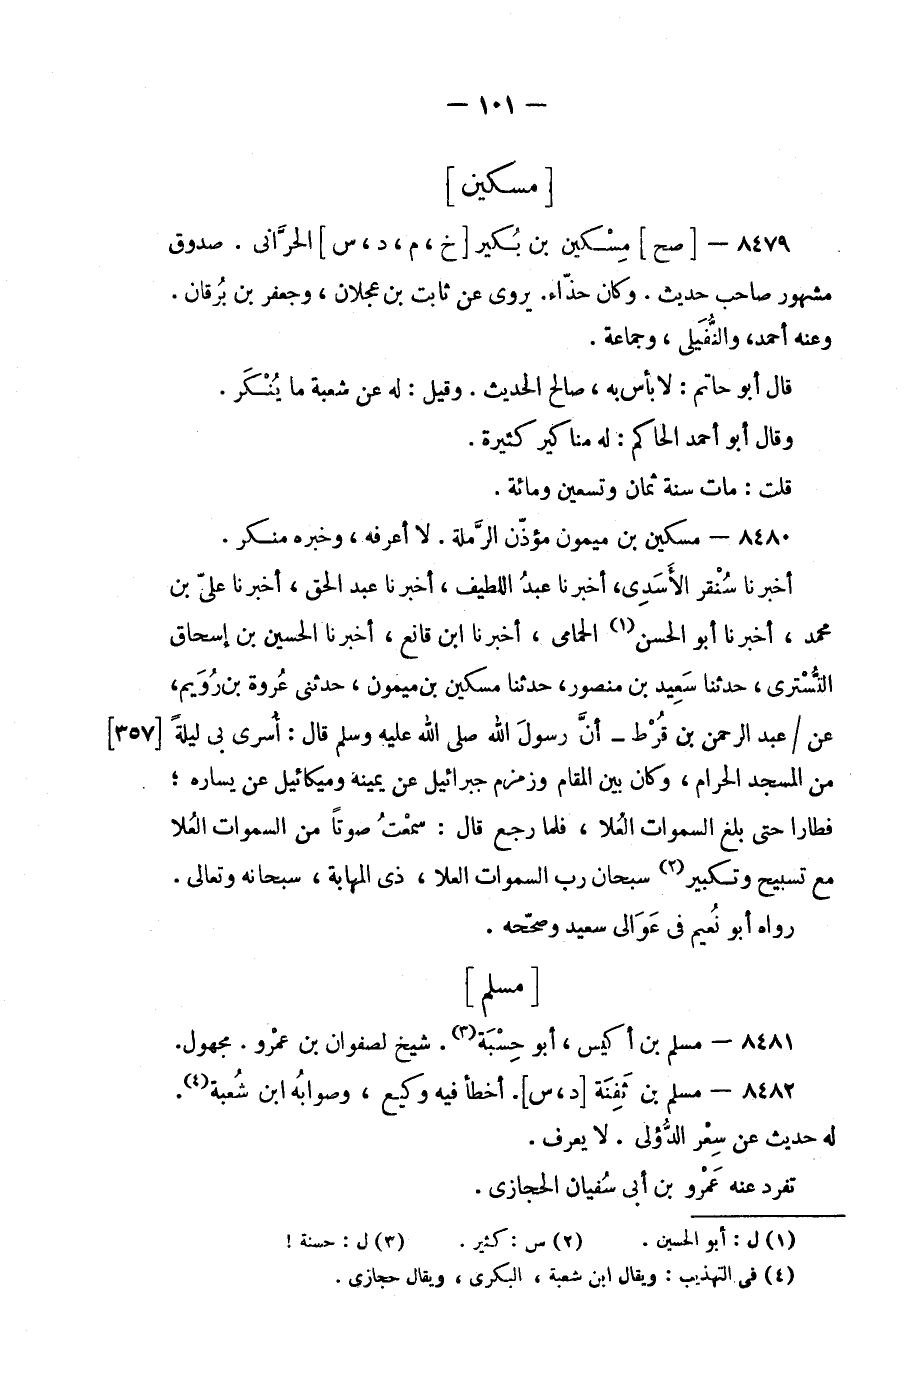 — ١٠١ —
[ مسكين ]
٨٤٧٩ — [ صح ] مِسْكين بن بُكير [ خ ، م ، د ، س ] الحرَّانى . صدوق
مشهور صاحب حديث . وكان حذّاء. يروى عن ثابت بن عجلان ، وجعفر بن بُرقان .
وعنه أحمد، والنُّفَيلى ، وجماعة .
قال أبو حاتم : لا بأس به ، صالح الحديث . وقيل : له عن شعبة ما يُنْكَر .
وقال أبو أحمد الحاكم : له مناكير كثيرة .
قلت : مات سنة ثمان وتسعين ومائة .
٨٤٨٠ — مسكين بن ميمون مؤذّن الرَّملة . لا أعرفه ، وخبره منكر .
أخبرنا سُنْقر الأَسَدِى، أخبرنا عبدُ اللطيف ، أخبرنا عبد الحق ، أخبرنا علىّ بن
محمد ، أخبرنا أبو الحسن(١) الحمامى ، أخبرنا ابن قانع ، أخبرنا الحسين بن إسحاق
التُّسْترى ، حدثنا سَعِيد بن منصور، حدثنا مسكين بن ميمون ، حدثنى عُروة بن رُوَيم،
عن / عبد الرحمن بن قُرْط – أنَّ رسولَ الله صلى الله عليه وسلم قال : أُسرى بى ليلةً [٣٥٧]
من المسجد الحرام ، وكان بين المقام وزمزم جبرائيل عن يمينه وميكائيل عن يساره ؛
فطارا حتى بلغ السموات العُلا ، فلما رجع قال : سمعْتُ صوتاً من السموات العُلا
مع تسبيح وتكبير(٢) سبحان رب السموات العلا ، ذى المهابة ، سبحانه وتعالى .
رواه أبو نُعيم فى عَوَالى سعيد وصحّحه .
[ مسلم ]
٨٤٨١ — مسلم بن أكيس ، أبو حِسْبَة(٣) . شيخ لصفوان بن عمْرو . مجهول.
٨٤٨٢ — مسلم بن ثَفِنَة [ د، س ]. أخطأ فيه وكيع ، وصوابُه ابن شُعبة(٤).
له حديث عن سِعْر الدُّؤلى . لا يعرف .
تفرد عنه عَمْرو بن أبى سُفيان الحجازى .
(١) ل : أبو الحسين . (٢) س : كثير . (٣) ل : حسنة !
(٤) فى التهذيب : ويقال ابن شعبة ، البكرى ، ويقال حجازى .